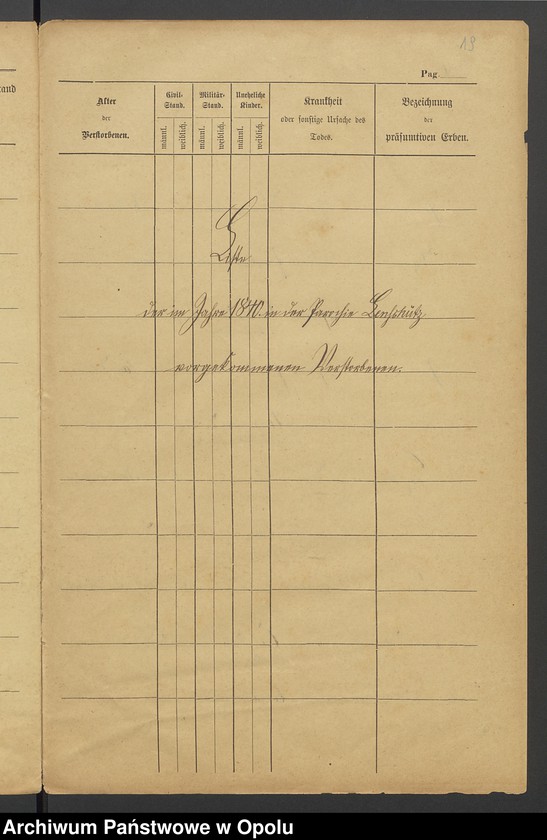 19
Pag.
tand
Alter
der
Verstorbenen.
Civil-
Stand.
männl.
weiblich.
Militär-
Stand.
männl.
weiblich.
Uneheliche
Kinder.
männl.
weiblich.
Krankheit
oder sonstige Ursache des
Todes.
Bezeichnung
der
präsumtiven Erben.
Liste
der im Jahre 1840. in der Parochie
vorgekommenen Verstorbenen.
Archiwum Państwowe w Opolu